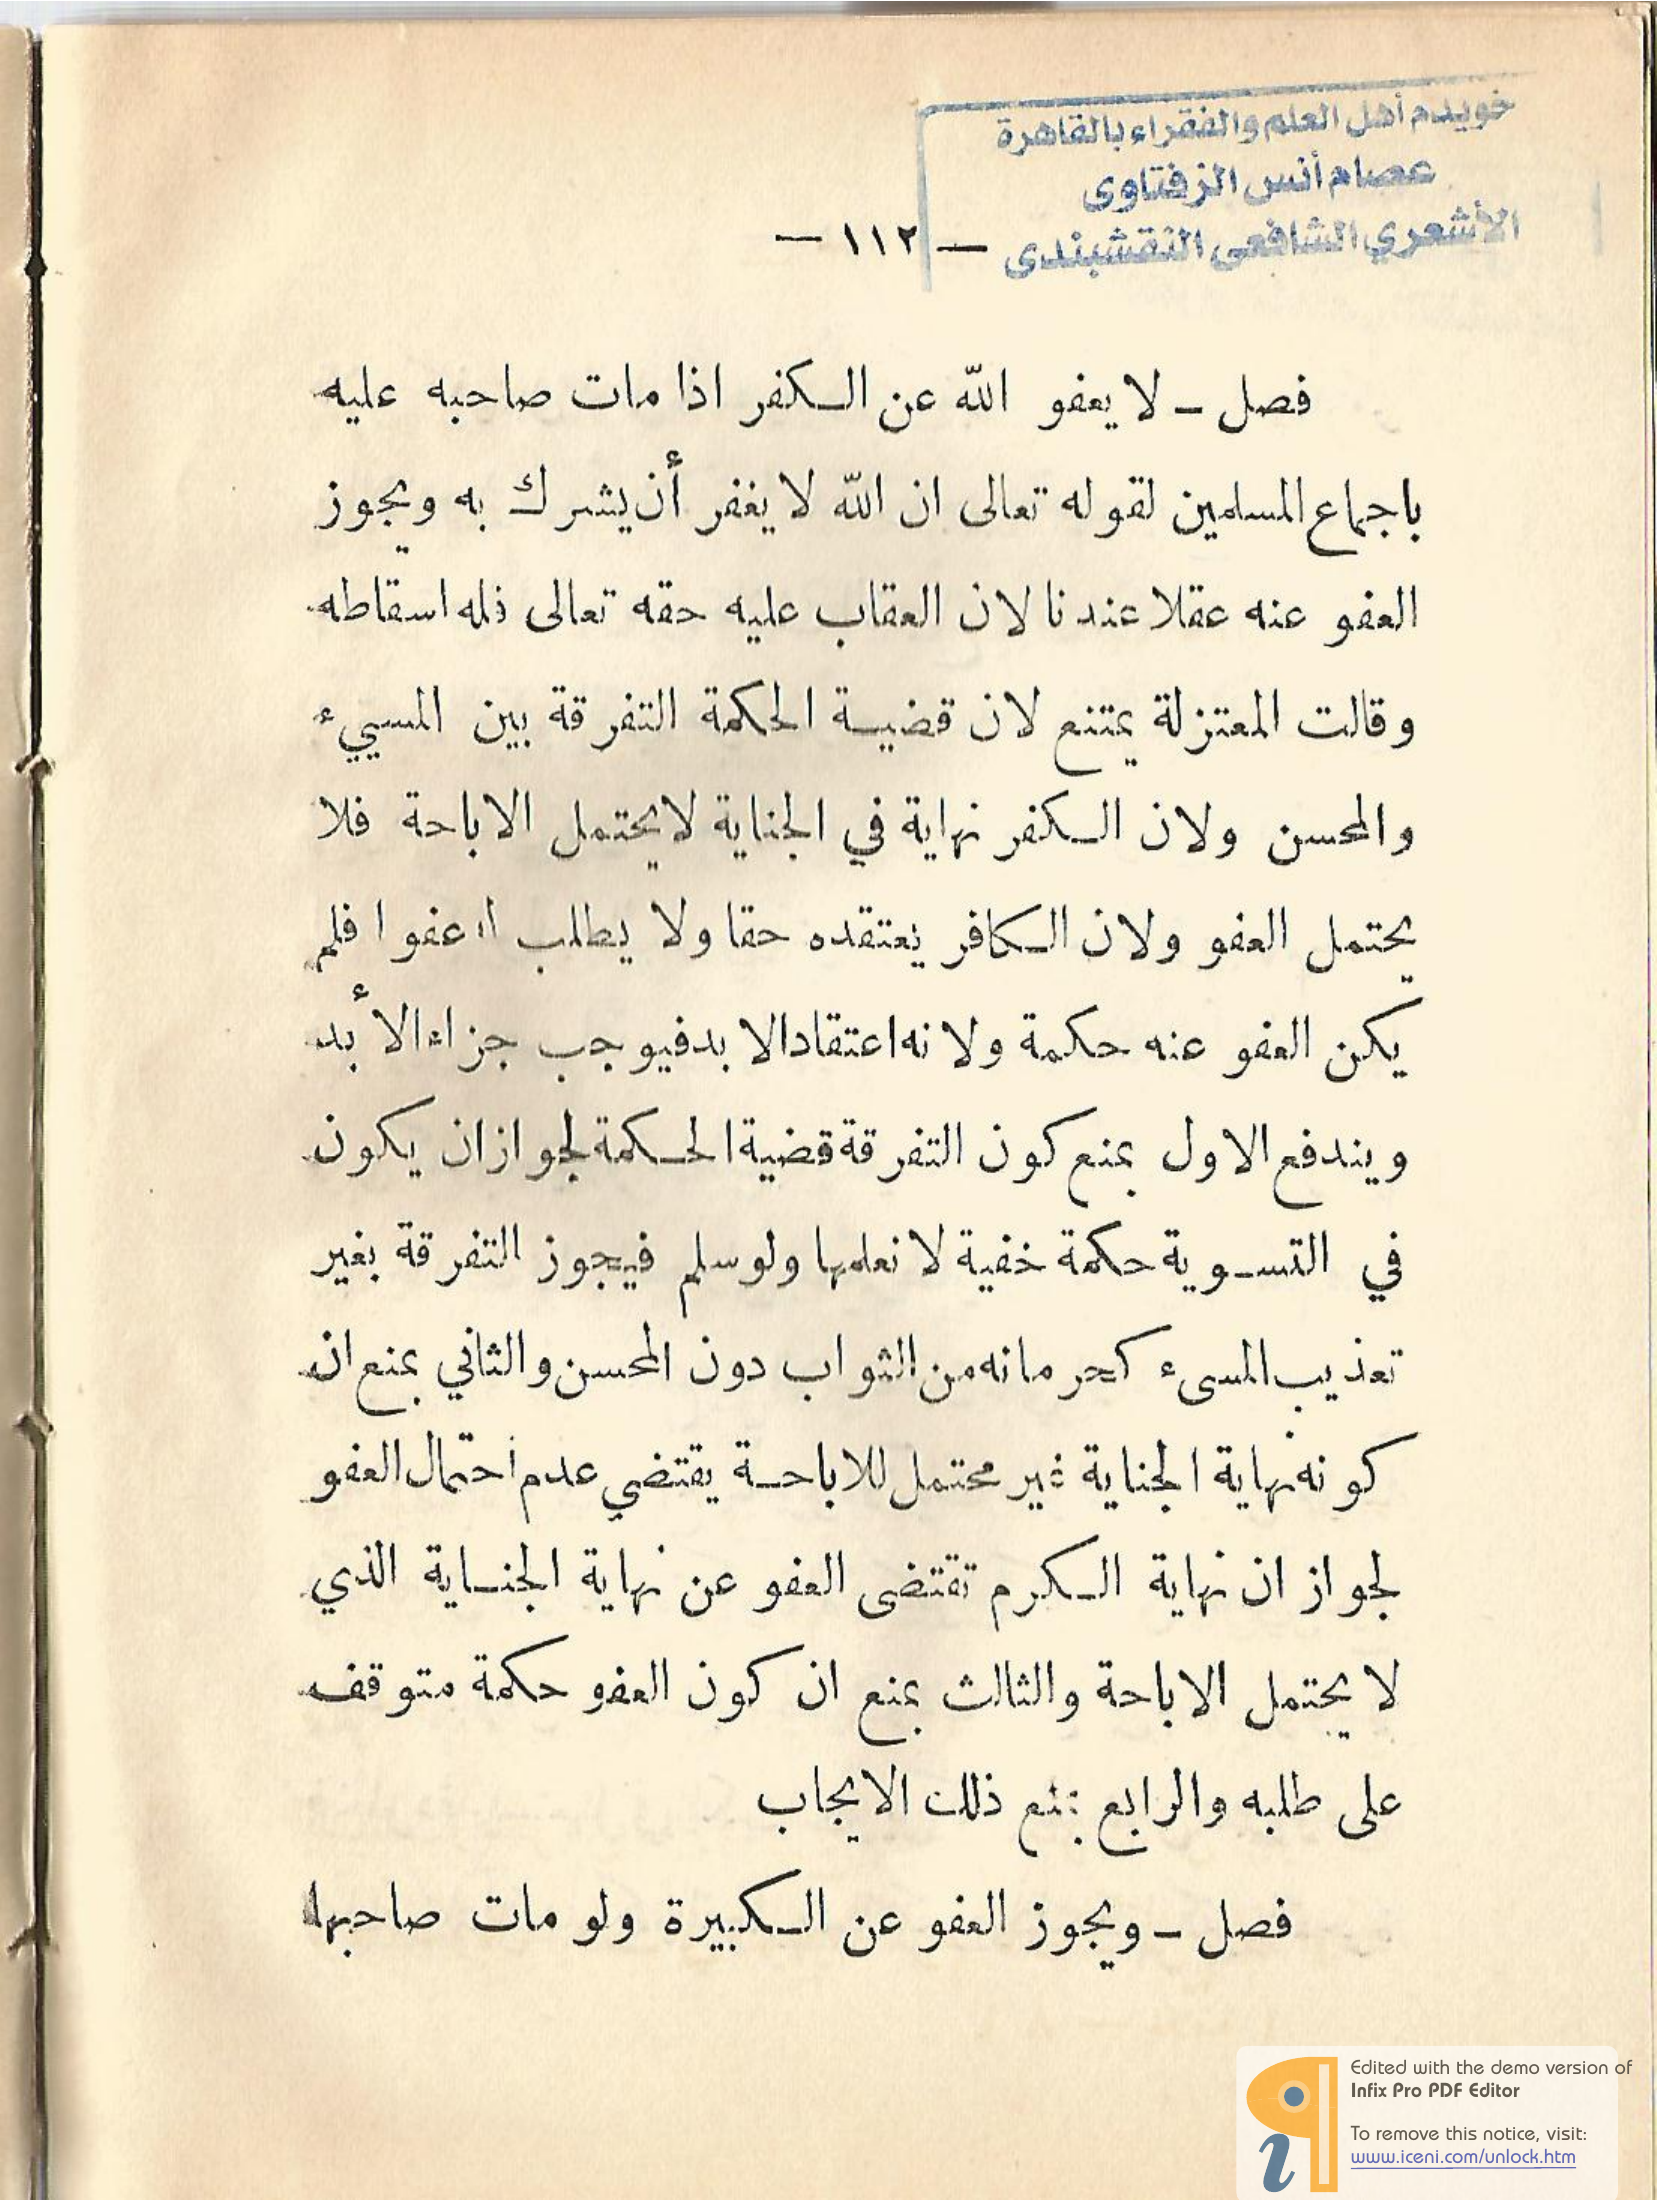 خويدم أهل العلم والفقراء بالقاهرة
عصام أنس الزفتاوى
الأشعري الشافعى النقشبندى
— ١١٢ —
فصل — لا يعفو الله عن الكفر اذا مات صاحبه عليه
باجماع المسلمين لقوله تعالى ان الله لا يغفر أن يشرك به ويجوز
العفو عنه عقلا عندنا لان العقاب عليه حقه تعالى فله اسقاطه
وقالت المعتزلة يمتنع لان قضية الحكمة التفرقة بين المسيء
والمحسن ولان الكفر نهاية في الجناية لا يحتمل الاباحة فلا
يحتمل العفو ولان الكافر يعتقده حقا ولا يطلب له عفوا فلم
يكن العفو عنه حكمة ولانه اعتقاد الابد فيوجب جزاء الأبد
ويندفع الاول بمنع كون التفرقة قضية الحكمة لجواز ان يكون
في التسوية حكمة خفية لا نعلمها ولو سلم فيجوز التفرقة بغير
تعذيب المسىء كحرمانه من الثواب دون المحسن والثاني بمنع ان
كونه نهاية الجناية غير محتمل للاباحة يقتضي عدم احتمال العفو
لجواز ان نهاية الكرم تقتضى العفو عن نهاية الجناية الذي
لا يحتمل الاباحة والثالث بمنع ان كون العفو حكمة متوقف
على طلبه والرابع بمنع ذلك الايجاب
فصل — ويجوز العفو عن الكبيرة ولو مات صاحبها
Edited with the demo version of
Infix Pro PDF Editor
To remove this notice, visit:
www.iceni.com/unlock.htm